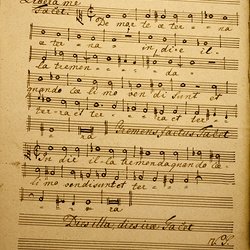 Libera me
Tacet. De mor te æ ter na
æ ter na in di e il
la tremen da
quando cœ li mo ven di sunt et
ter ra et ter ra et ter
ra Tremens factus Tacet
In die il la tremenda quando cœ
li mo vendi sunt et ter
ra
Dies illa, dies iræ Tacet